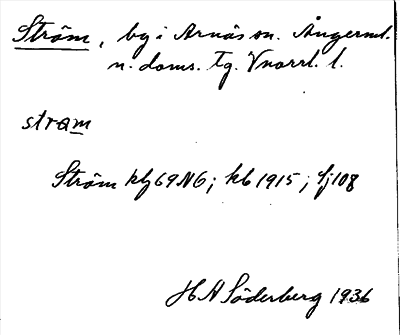 Ström, by i Arnäs sn. Ångerml.
n. doms. tg. Vnorrl. l.
stram
Ström klj 69 NG; kb 1915; lj 108
H A Söderberg 1936